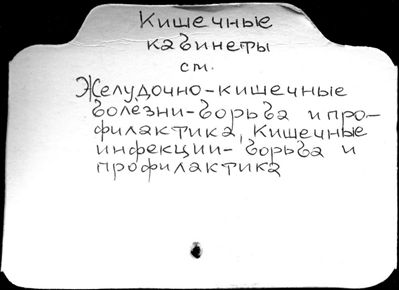 Кишечные
кабинеты
см.
Желудочно-кишечные
болезни-борьба и про-
филактика, Кишечные
инфекции-борьба и
профилактика